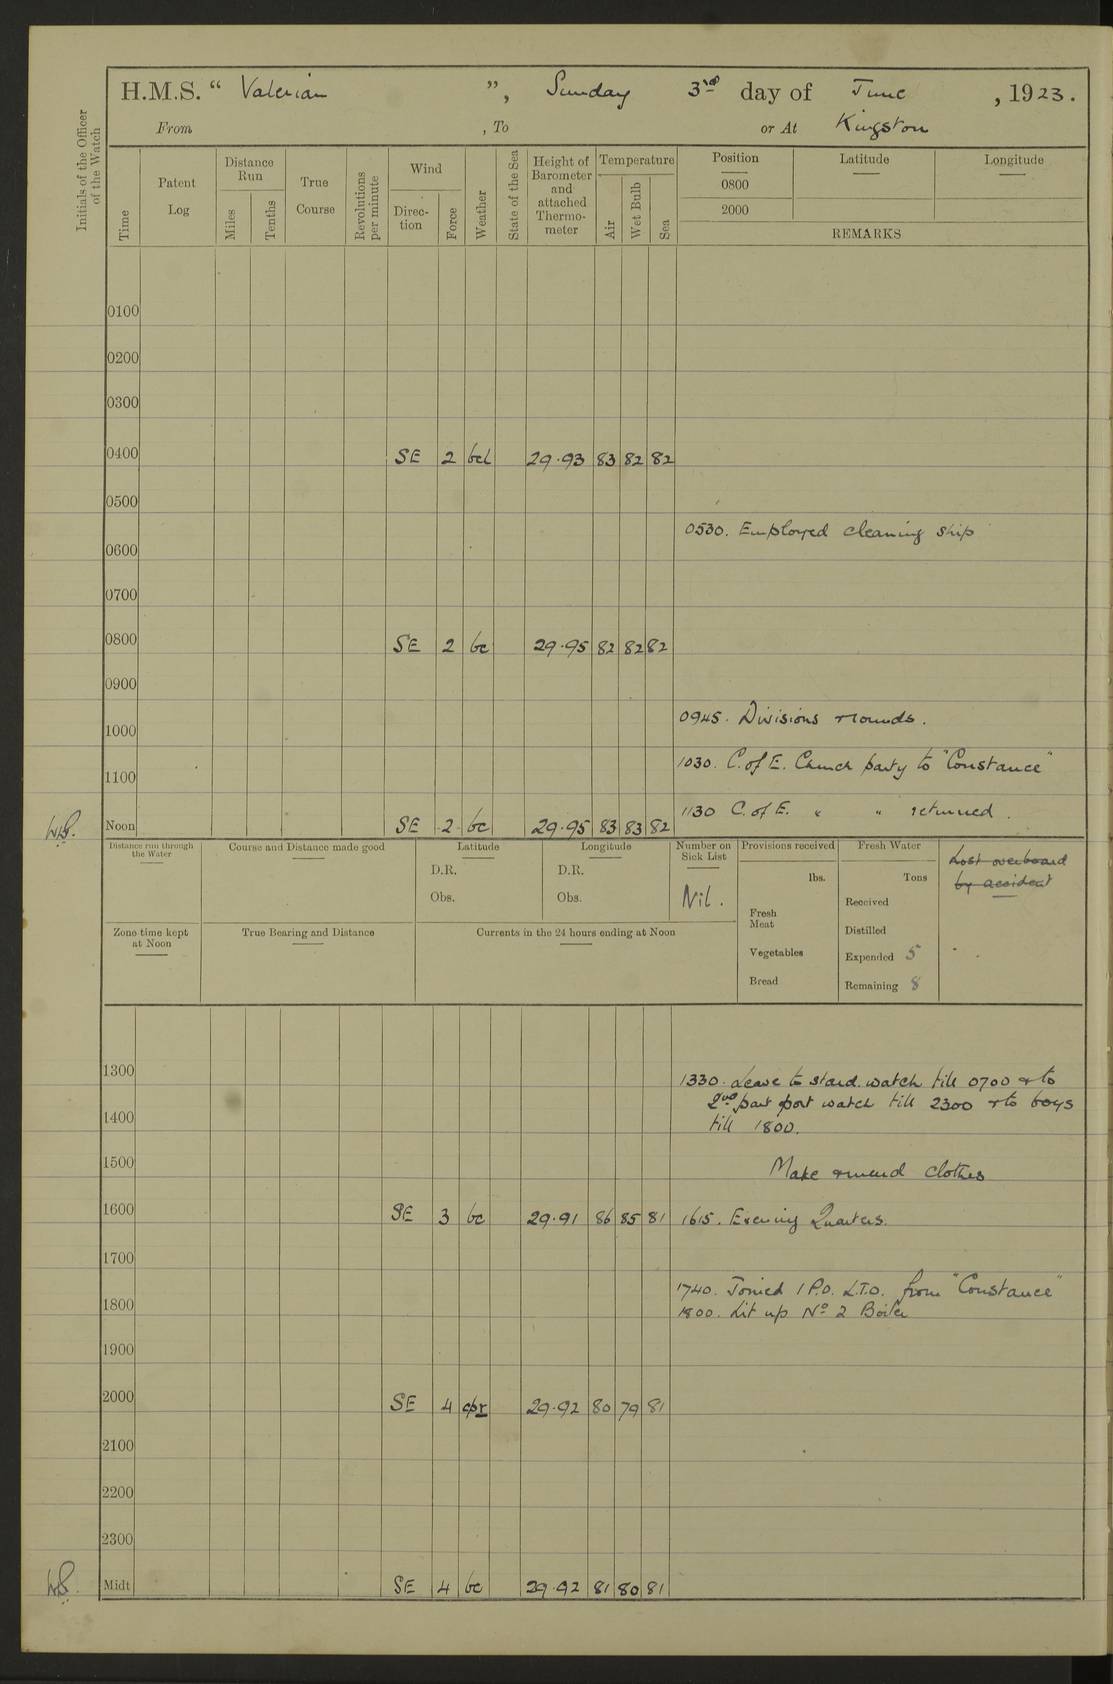 H.M.S. “ Valerian ”, Sunday 3rd day of June , 1923.
From , To or At Kingston
Initials of the Officer of the Watch
Time
Patent Log
Distance Run
Miles
Tenths
True Course
Revolutions per minute
Wind
Direction
Force
Weather
State of the Sea
Height of Barometer and attached Thermometer
Temperature
Air
Wet Bulb
Sea
Position
0800
2000
Latitude
Longitude
REMARKS
0100
0200
0300
0400 SE 2 bcl 29.93 83 82 82
0500
0530. Employed cleaning ship
0600
0700
0800 SE 2 bc 29.95 82 82 82
0900
0945. Divisions & rounds.
1000
1030. C. of E. Church party to "Constance"
1100
1130 C. of E. " " returned.
Noon SE 2 bc 29.95 83 83 82
Distance run through the Water
Course and Distance made good
Latitude
D.R.
Obs.
Longitude
D.R.
Obs.
Number on Sick List
Nil.
Provisions received
lbs.
Fresh Meat
Vegetables
Bread
Fresh Water
Tons
Received
Distilled
Expended 5
Remaining 8
Lost overboard
by accident
Zone time kept at Noon
True Bearing and Distance
Currents in the 24 hours ending at Noon
1300
1330. Leave to stard. watch till 0700 & to
2nd part port watch till 2300 & to boys
till 1800.
1400
1500
Make & mend clothes
1600 SE 3 bc 29.91 86 85 81 1615. Evening Quarters.
1700
1740. Joined 1 P.O. L.T.O. from "Constance"
1800 1800. Lit up No 2 Boiler
1900
2000 SE 4 cpr 29.92 80 79 81
2100
2200
2300
Midt SE 4 bc 29.92 81 80 81